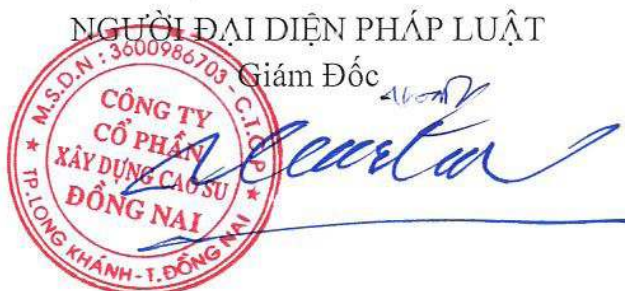 NGƯỜI ĐẠI DIỆN PHÁP LUẬT
Giám Đốc
M.S.D.N: 3600986703 - C.T.C.P
CÔNG TY
CỔ PHẦN
XÂY DỰNG CAO SU
ĐỒNG NAI
TP-LONG KHÁNH-T.ĐỒNG NAI